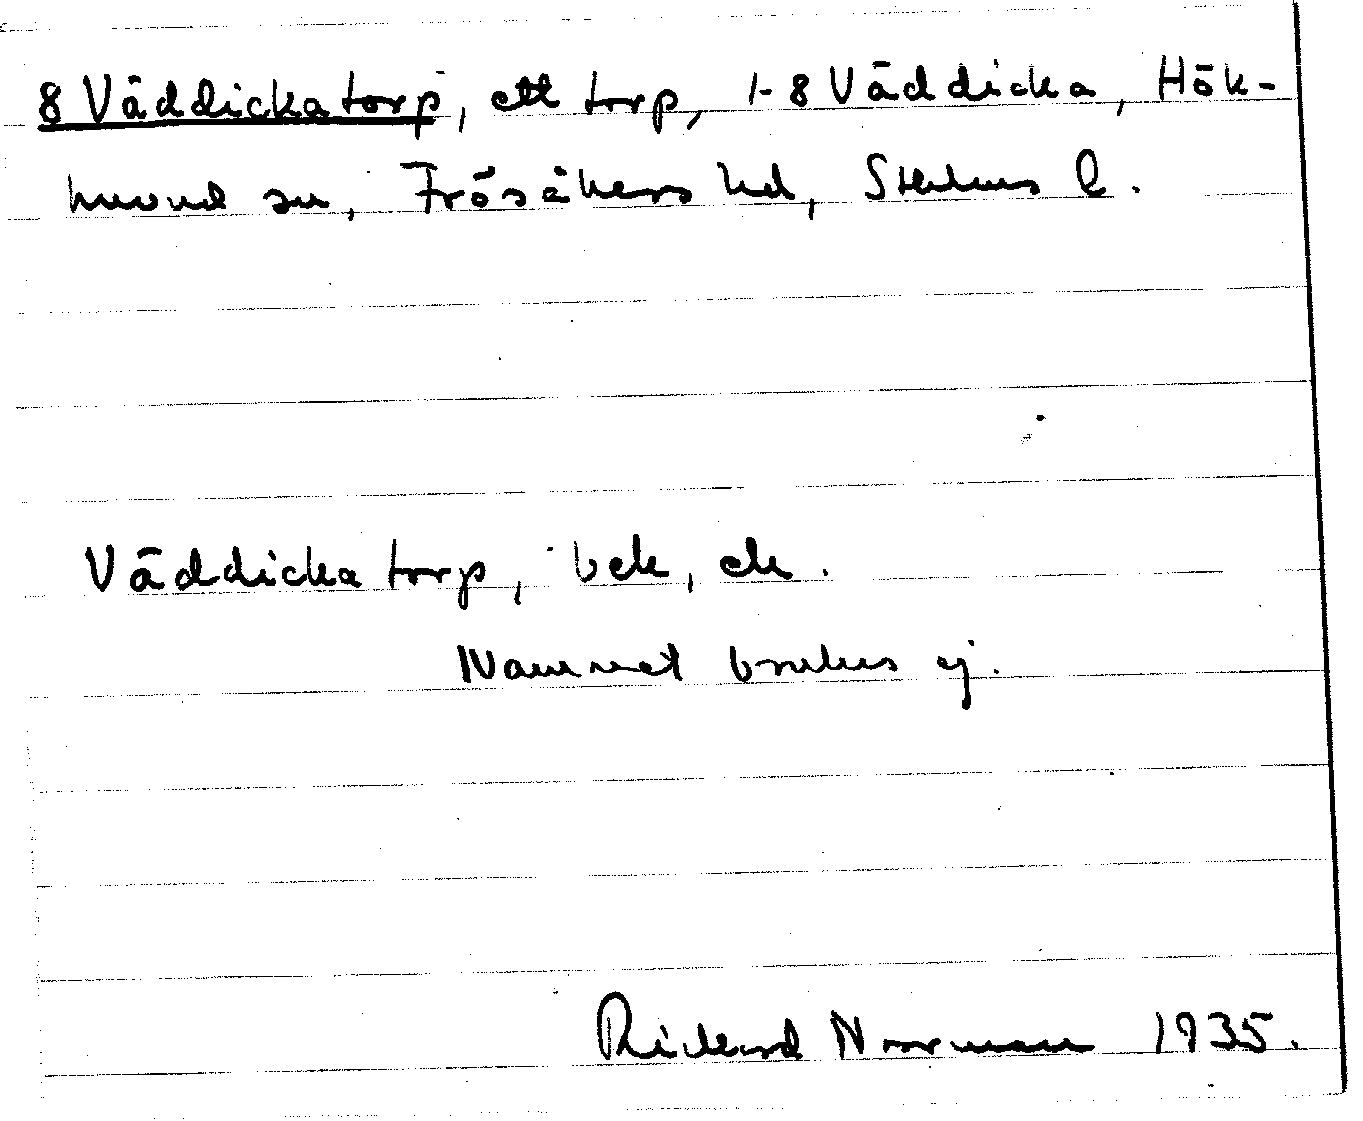 8 Väddickatorp, ett torp, 1-8 Väddicka, Hök-
huvud sn, Frösåkers hd, Sthlms l.
Väddickatorp, bek, ek.
Namnet brukas ej.
Rickard Norrman 1935.